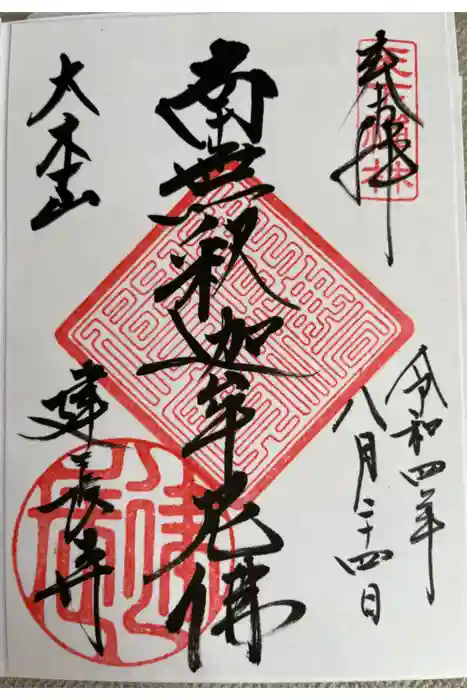 奉拝
天下禅林
令和四年
八月二十四日
南無釈迦牟尼佛
大本山
建長寺